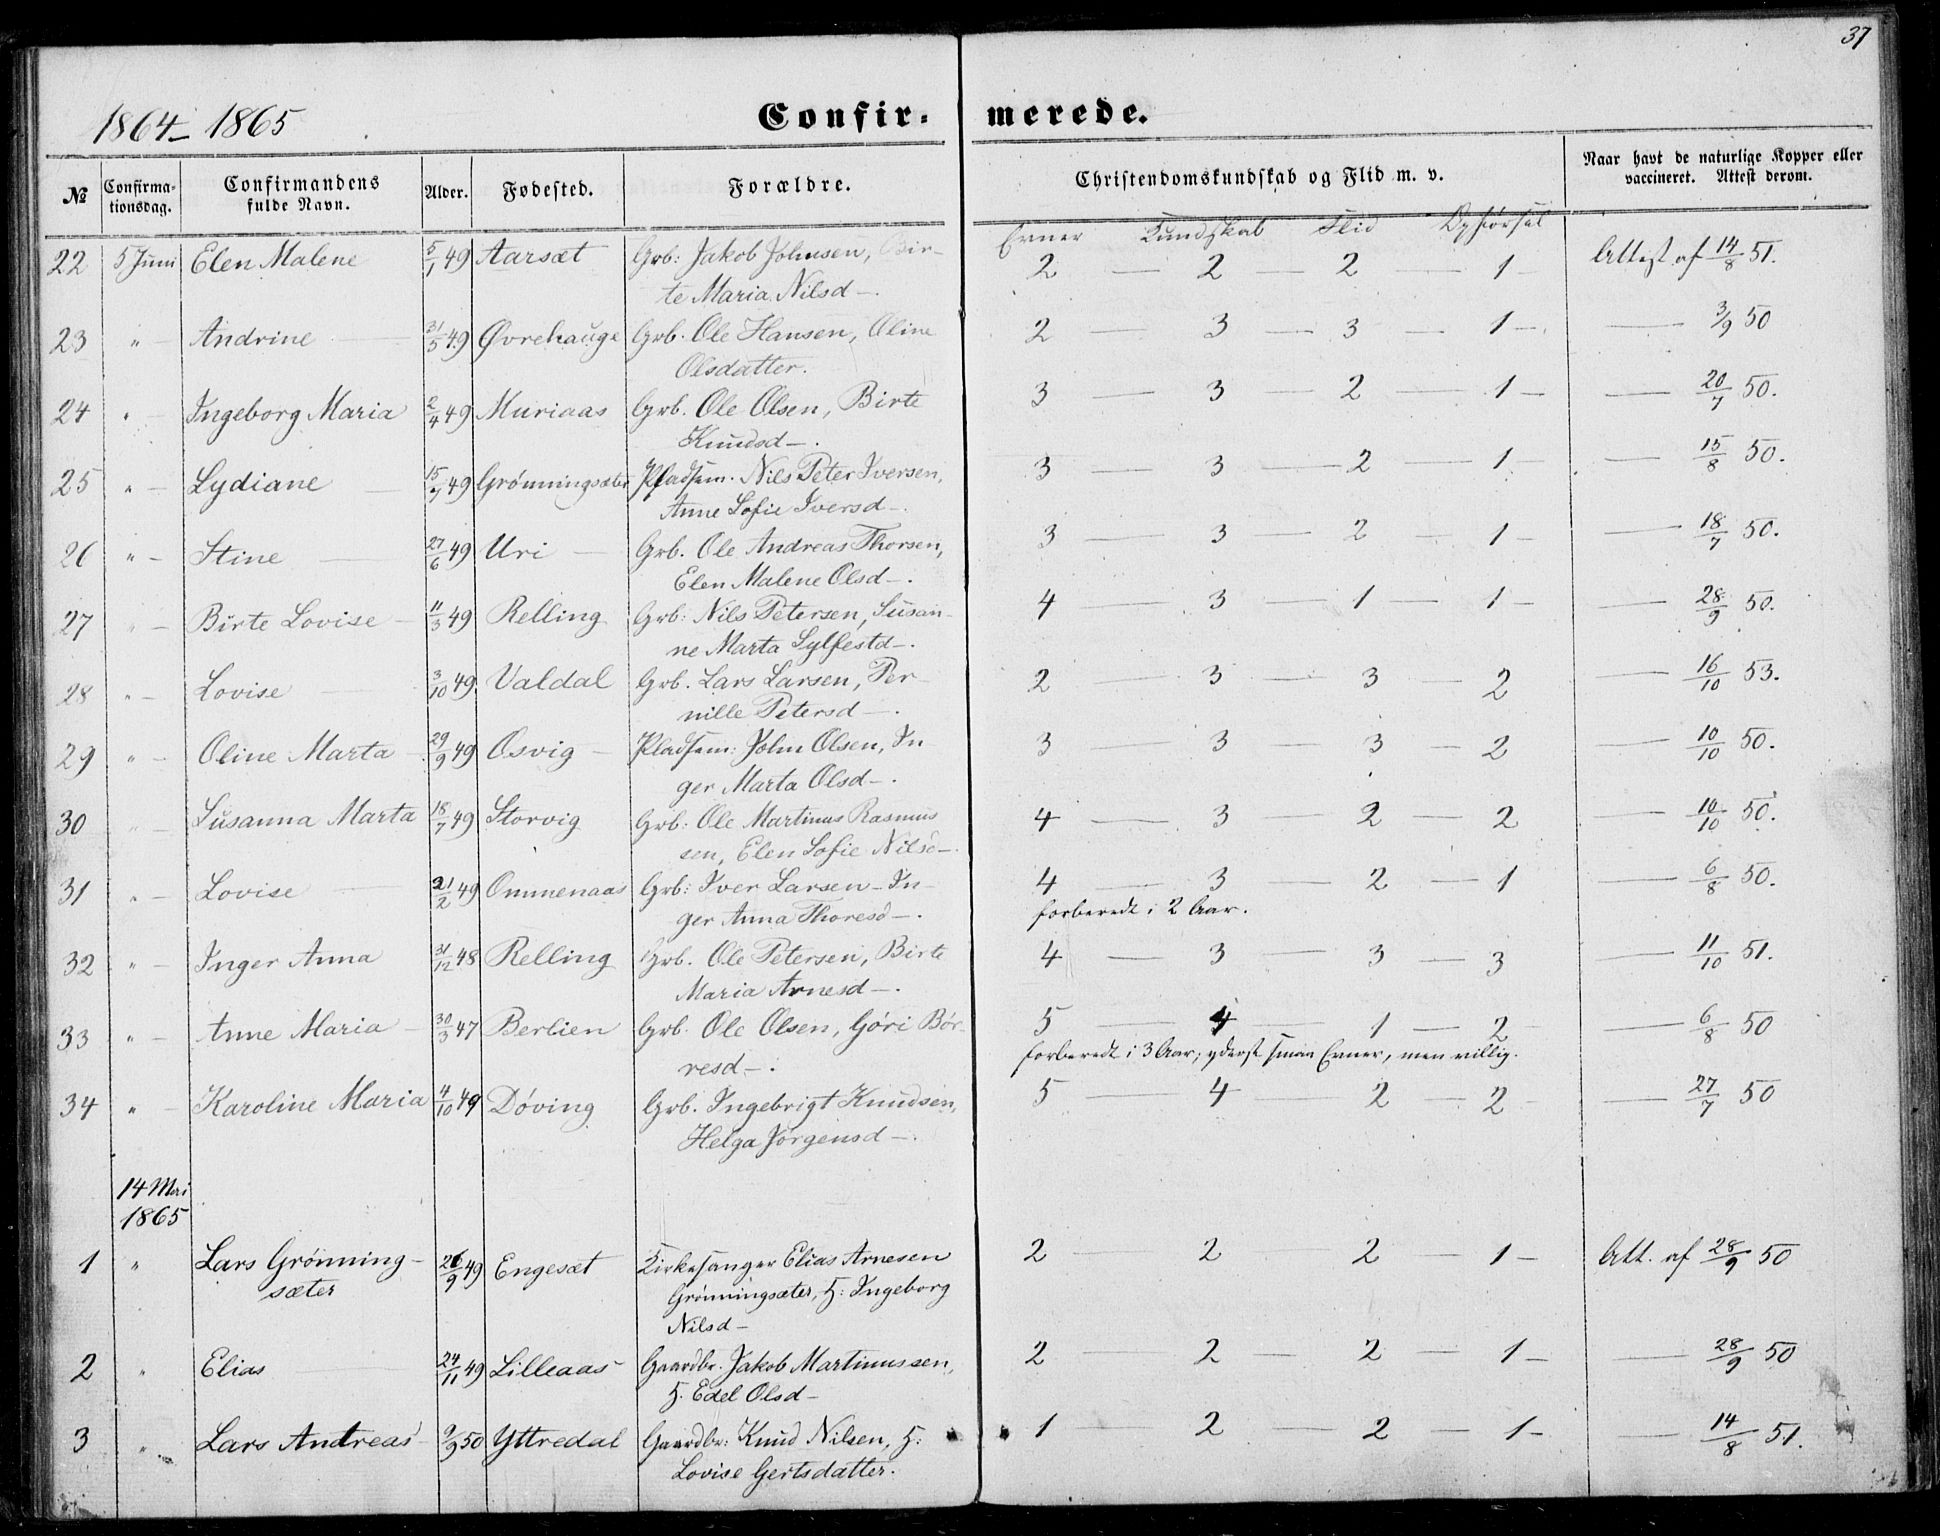 37
1864 – 1865
Confirmerede.
№ Confirmationsdag. Confirmandens fulde Navn. Alder. Fødested. Forældre. Christendomskundskab og Flid m. v. Naar havt de naturlige Kopper eller vaccineret. Attest derom.
Evner Kundskab Flid Opførsel
22 5 Juni Elen Malene 5/1 49 Aarsæt Grb: Jakob Johnsen, Bir- 2 — 2 — 2 — 1 — Attest af 14/8 51.
te Maria Nilsd —.
23 " — Andrine 31/5 49 Øvrehauge Grb. Ole Hansen, Oline 2 — 3 — 3 — 1 —. — 3/9 50
Olsdatter.
24 " — Ingeborg Maria 2/4 49 Muriaas Grb. Ole Olsen, Birte 3 — 3 — 2 — 1 — — 20/7 50.
Knudsd —.
25 " — Lydiane 15/7 49 Grønningsæter Pladsm. Nils Peter Iversen, 3 — 3 — 2 — 1 — 15/8 50.
Anne Sofie Iversd —.
26 " — Stine 27/6 49 Uri — Grb. Ole Andreas Thorsen, 3 — 3 — 2 — 1 — — 18/7 50.
Elen Malene Olsd —.
27 " — Birte Lovise — 11/3 49 Relling Grb: Nils Petersen, Susan- 4 — 3 — 1 — 1 — — 28/9 50.
ne Marta Sylfestd —.
28 " — Lovise 3/10 49. Valdal Grb. Lars Larsen, Per- 2 — 3 — 3 — 2 — 16/10 53.
nille Petersd —.
29 " — Oline Marta 29/9 49 Osvig — Pladsm: John Olsen, In 3 3 — 3 — 2 — 10/10 50.
ger Marta Olsd —.
30 " — Susanna Marta 18/7 49 Storvig Grb: Ole Martinus Rasmus 4 — 3 — 2 — 2 — 10/10 50.
sen, Elen Sofie Nilsd —.
31 " — Lovise 21/2 49 Ommenaas Grb: Iver Larsen – In- 4 — 3 — 2 — 1 — 6/8 50.
ger Anna Thoresd —. forberedt i 2 Aar.
32 " — Inger Anna 31/12 48 Relling Grb. Ole Petersen, Birte 4 — 3 — 3 — 3 — 11/10 51.
Maria Arnesd —.
33 " — Anne Maria — 30/3 47 Berlien Grb. Ole Olsen, Góri Bør- 5 — 4 — 1 — 2 — 6/8 50
resd —. forberedt i 3 Aar; yderst smaa Evner, men villig.
34 " — Karoline Maria 4/10 49 Døving Grb. Ingebrigt Knudsen, 5 — 4 2 — 2 — — 27/7 50
Helga Jørgensd —.
14 Mai
1865
1 " Lars Grønning- 26/9 49 Engesæt Kirkesanger Elias Arnesen 2 — 2 — 2 — 1 — Att. af 28/9 50
sæter Grønningsæter, H: Ingeborg
Nilsd —
2 " Elias 24/11 49 Lilleaas Gaardbr. Jakob Martinussen, 2 — 2 — 2 — 1 — — 28/9 50
H. Edel Olsd —
3 " Lars Andreas 9/9 50 Yttredal Gaardbr: Knud Nilsen, H: 1 — 2 — 2 — 1 — — 14/8 51.
Lovise Gertsdatter.